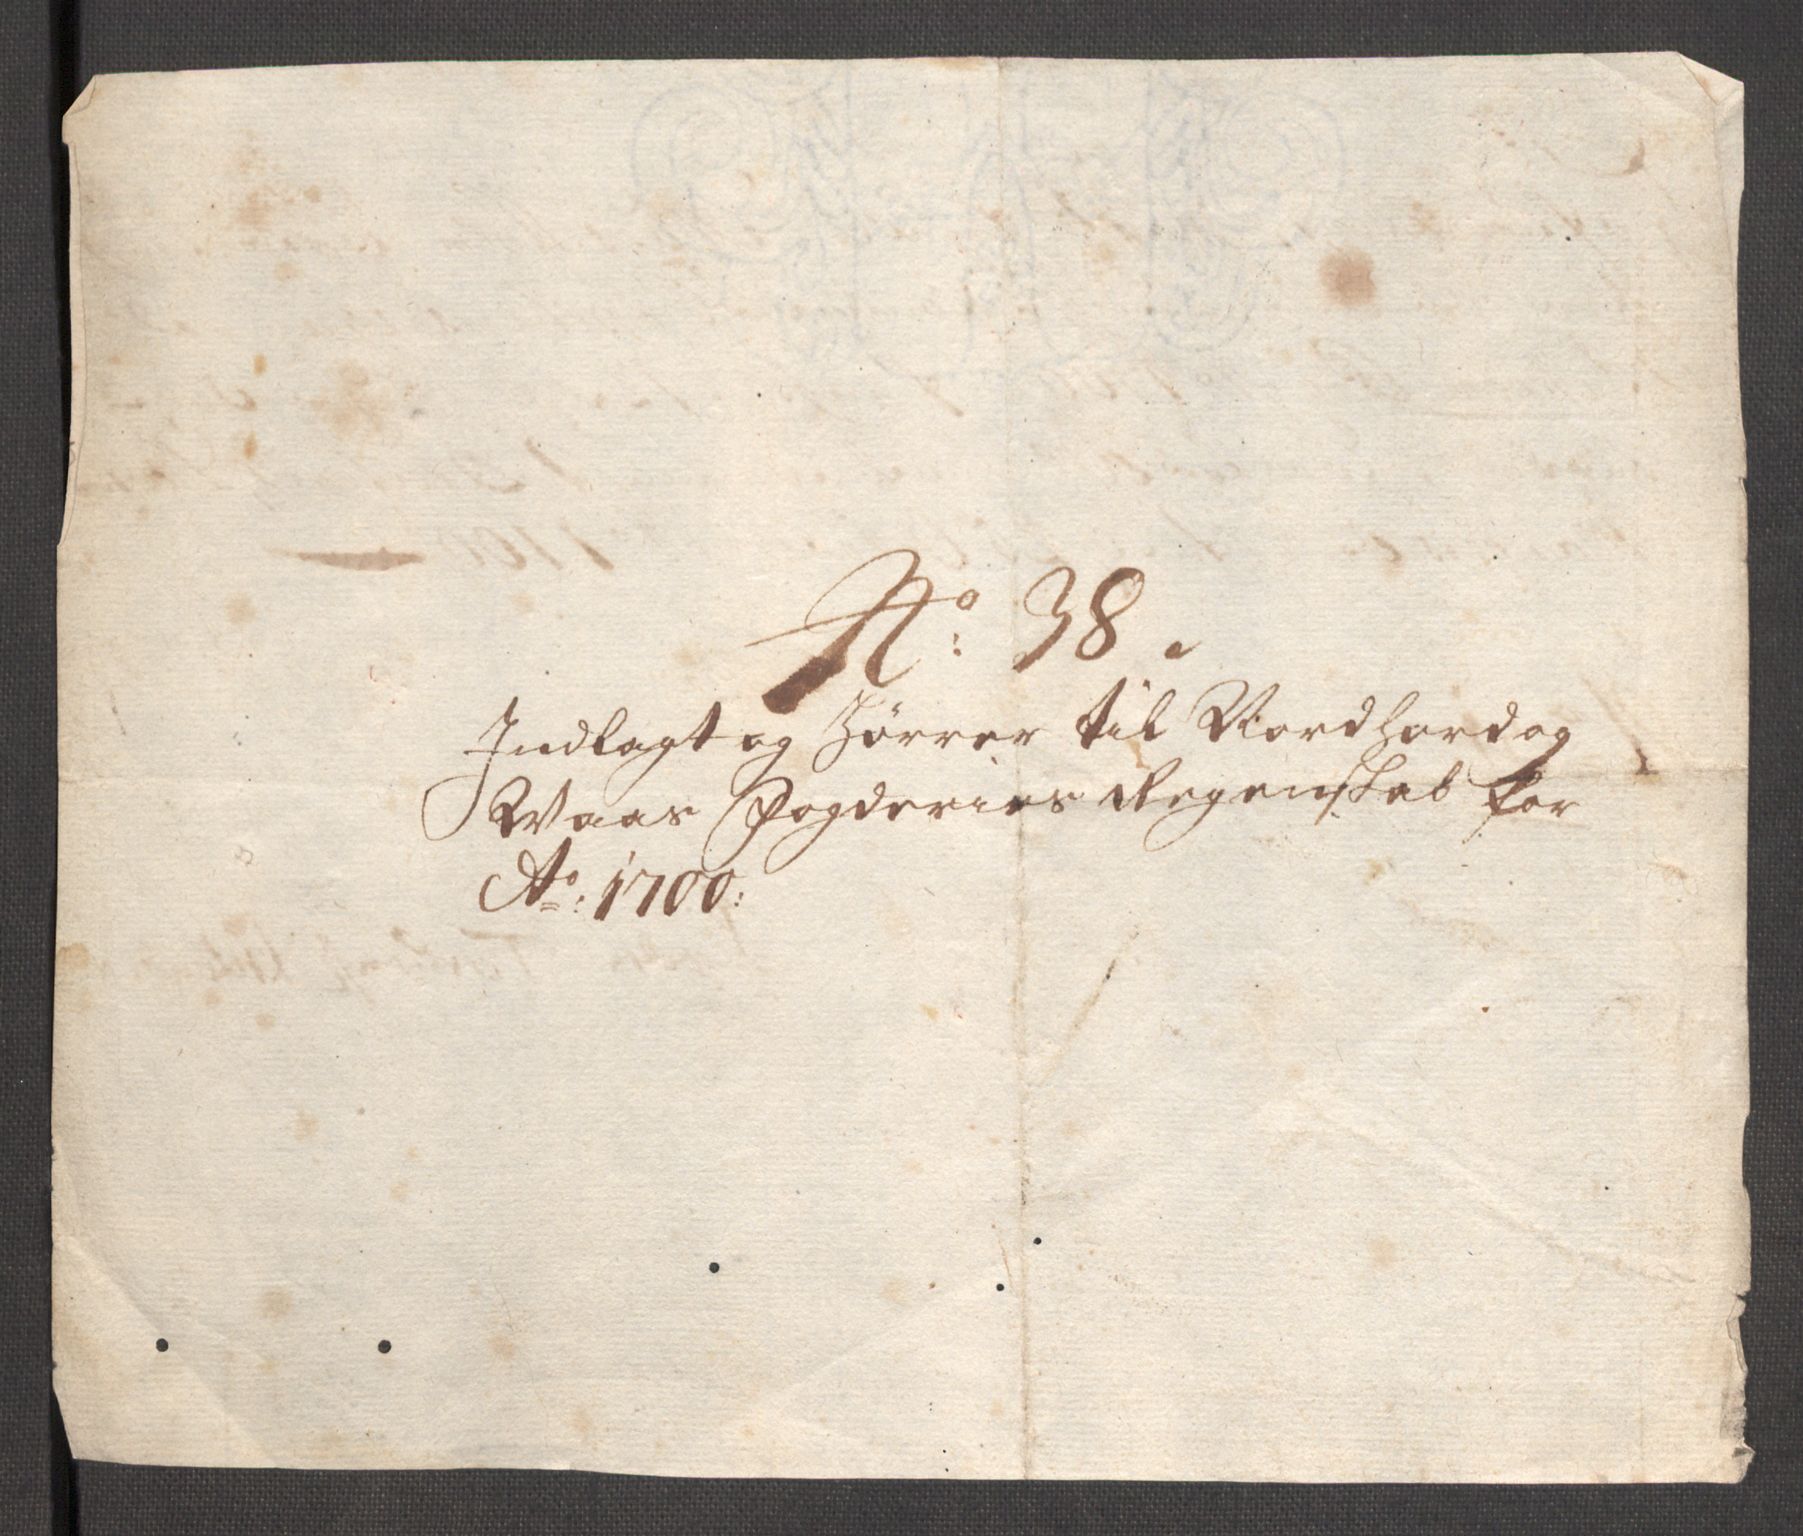 No: 38.
Indlagt og hörrer til Nordhord og
Waas Fogderies Regenskab for
Ao: 1700: